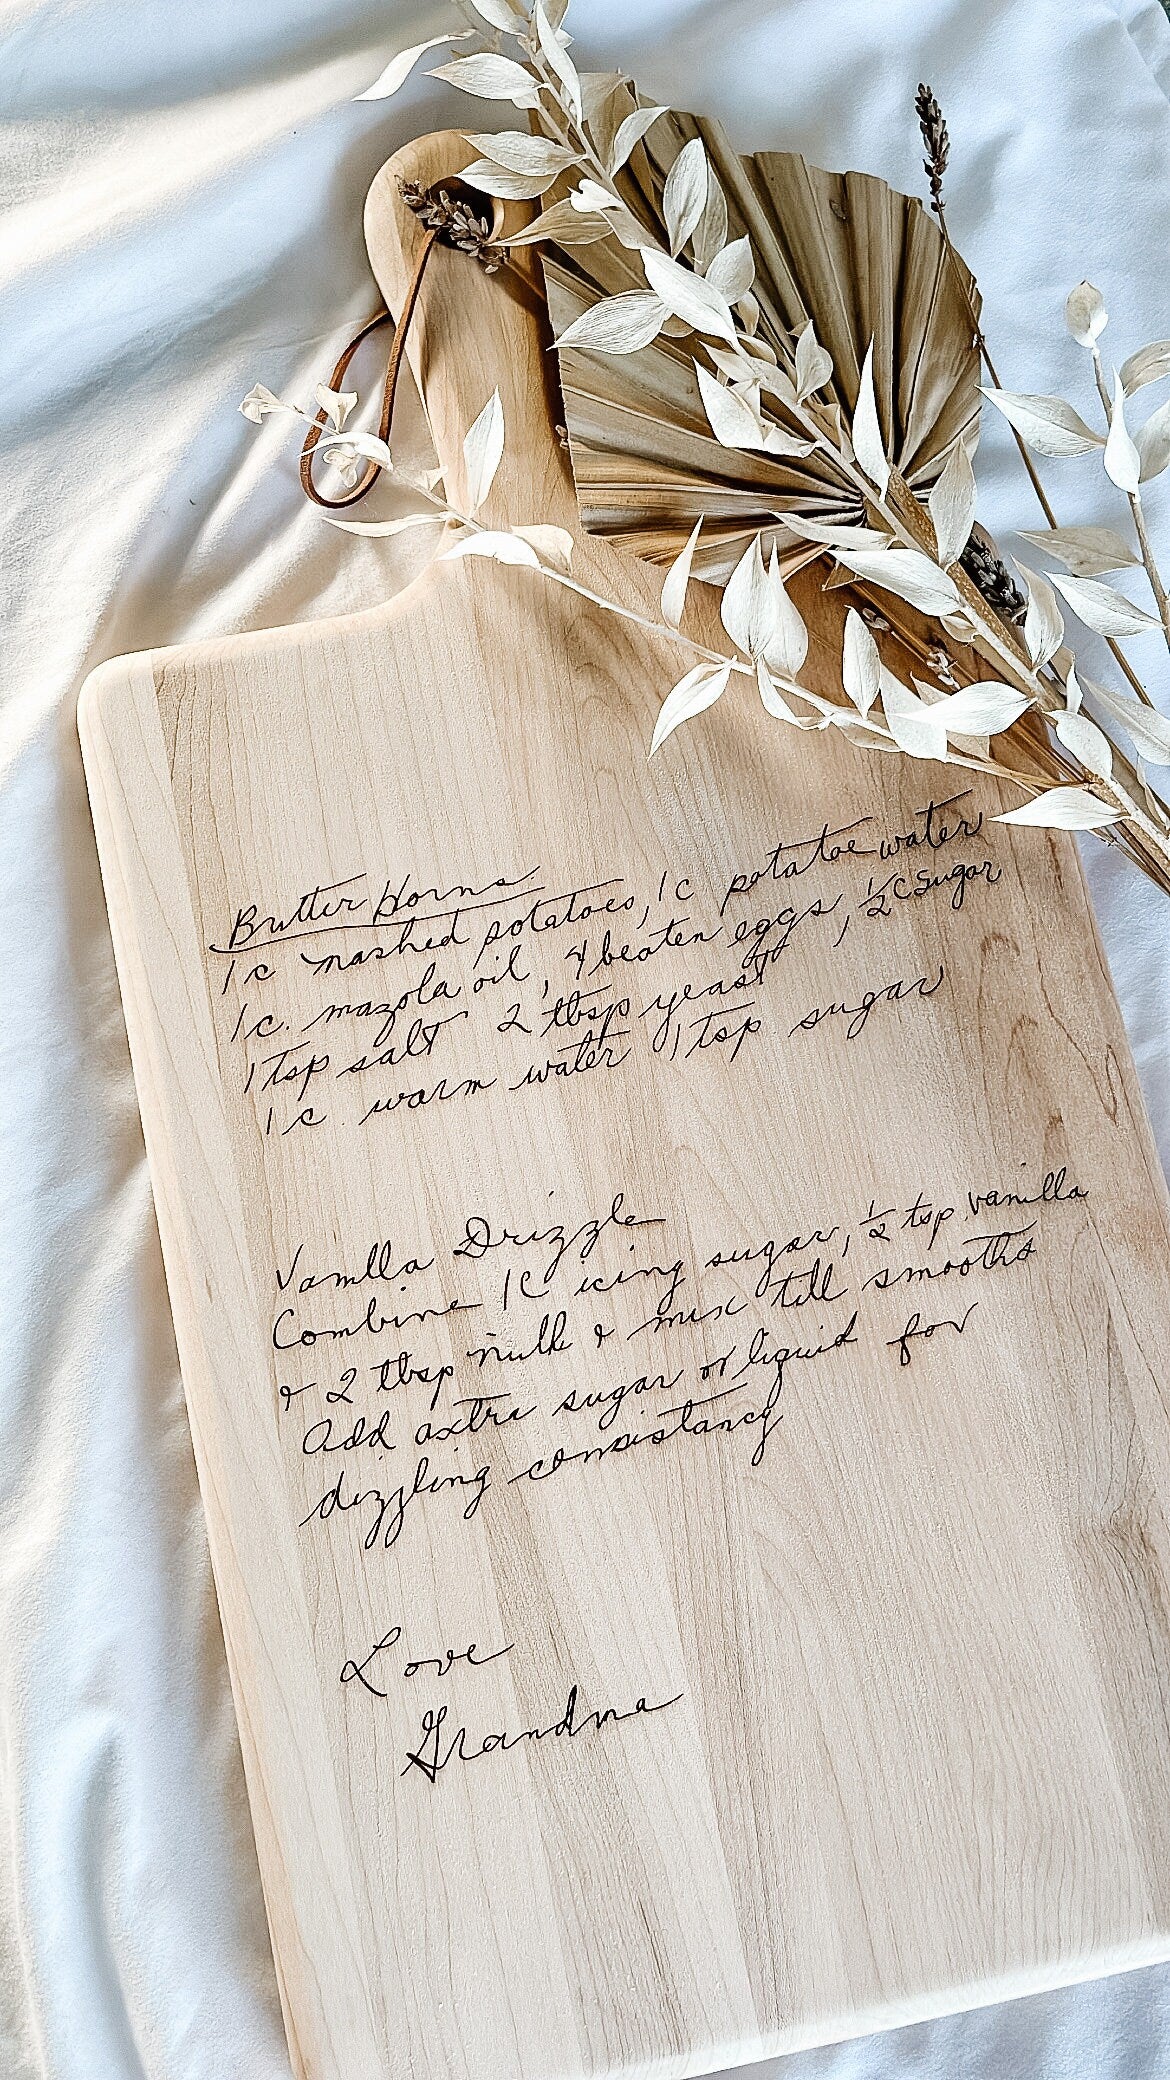 Butter Horns
1c mashed potatoes, 1c potatoe water
1c. mazola oil, 4 beaten eggs, ½c sugar
1 tsp salt 2 tbsp yeast
1c. warm water 1 tsp sugar
Vanilla Drizzle
Combine 1C icing sugar, ½ tsp vanilla
& 2 tbsp milk & mix till smooth
Add extra sugar or liquid for
dizzling consistancy
Love
Grandma